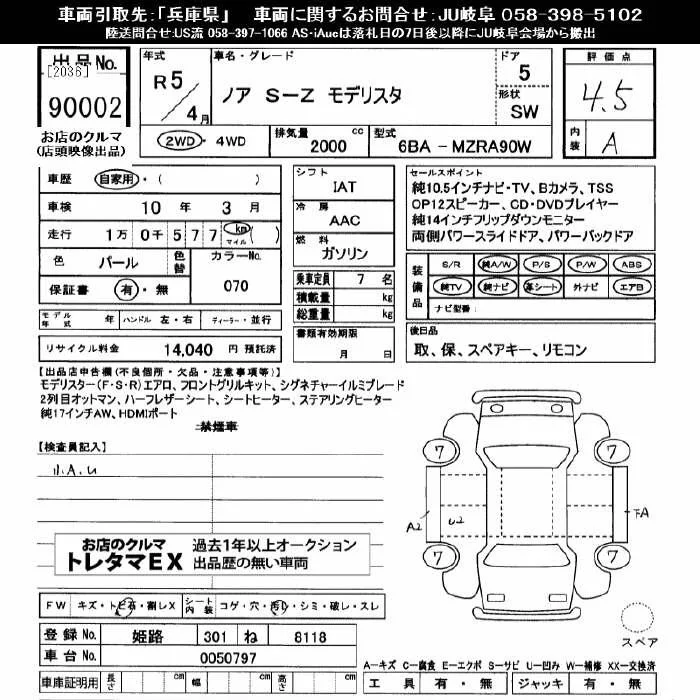 車両引取先:「兵庫県」 車両に関するお問合せ:JU岐阜 058-398-5102
陸送問合せ:US流 058-397-1066 AS-iAucは落札日の7日後以降にJU岐阜会場から搬出
出品No.
[2036]
90002
お店のクルマ
(店頭映像出品)
年式 車名・グレード ドア 評価点
R5/4月 ノア S-Z モデリスタ 5 4.5
形状
SW
2WD・4WD 排気量 2000 cc 型式 6BA - MZRA90W 内装 A
車歴 自家用・( )
車検 10年 3月
走行 1万 0千 5 7 7 km マイル ( )
色 パール 色替 カラーNo.
保証書 有・無 070
モデル年式 年 ハンドル 左・右 ディーラー・並行
リサイクル料金 14,040 円 預託済
シフト
IAT
冷房
AAC
燃料
ガソリン
乗車定員 7 名
積載量 kg
総重量 kg
書類有効期限
月 日
セールスポイント
純10.5インチナビ・TV、Bカメラ、TSS
OP12スピーカー、CD・DVDプレイヤー
純14インチフリップダウンモニター
両側パワースライドドア、パワーバックドア
装備品 S/R 純A/W P/S P/W ABS
純TV 純ナビ 革シート 外ナビ エアB
ナビ型番:
後日品
取、保、スペアキー、リモコン
【出品店申告欄(不良個所・欠品・注意事項等)】
モデリスタ(F・S・R)エアロ、フロントグリルキット、シグネチャーイルミブレード
2列目オットマン、ハーフレザーシート、シートヒーター、ステアリングヒーター
純17インチAW、HDMIポート
禁煙車
【検査員記入】
小A.U
お店のクルマ
トレタマEX
過去1年以上オークション
出品歴の無い車両
FW キズ・トビ石・割レX シート内装 コゲ・穴・汚レ・シミ・破レ・スレ
登録No. 姫路 301 ね 8118
車台No. 0050797
車庫証明用 長さ cm 幅 cm 高さ cm
7 7
A2 U2
7 7
スペア
A-キズ C-腐食 E-エクボ S-サビ U-凹み W-補修 XX-交換済
工具 有・無 ジャッキ 有・無